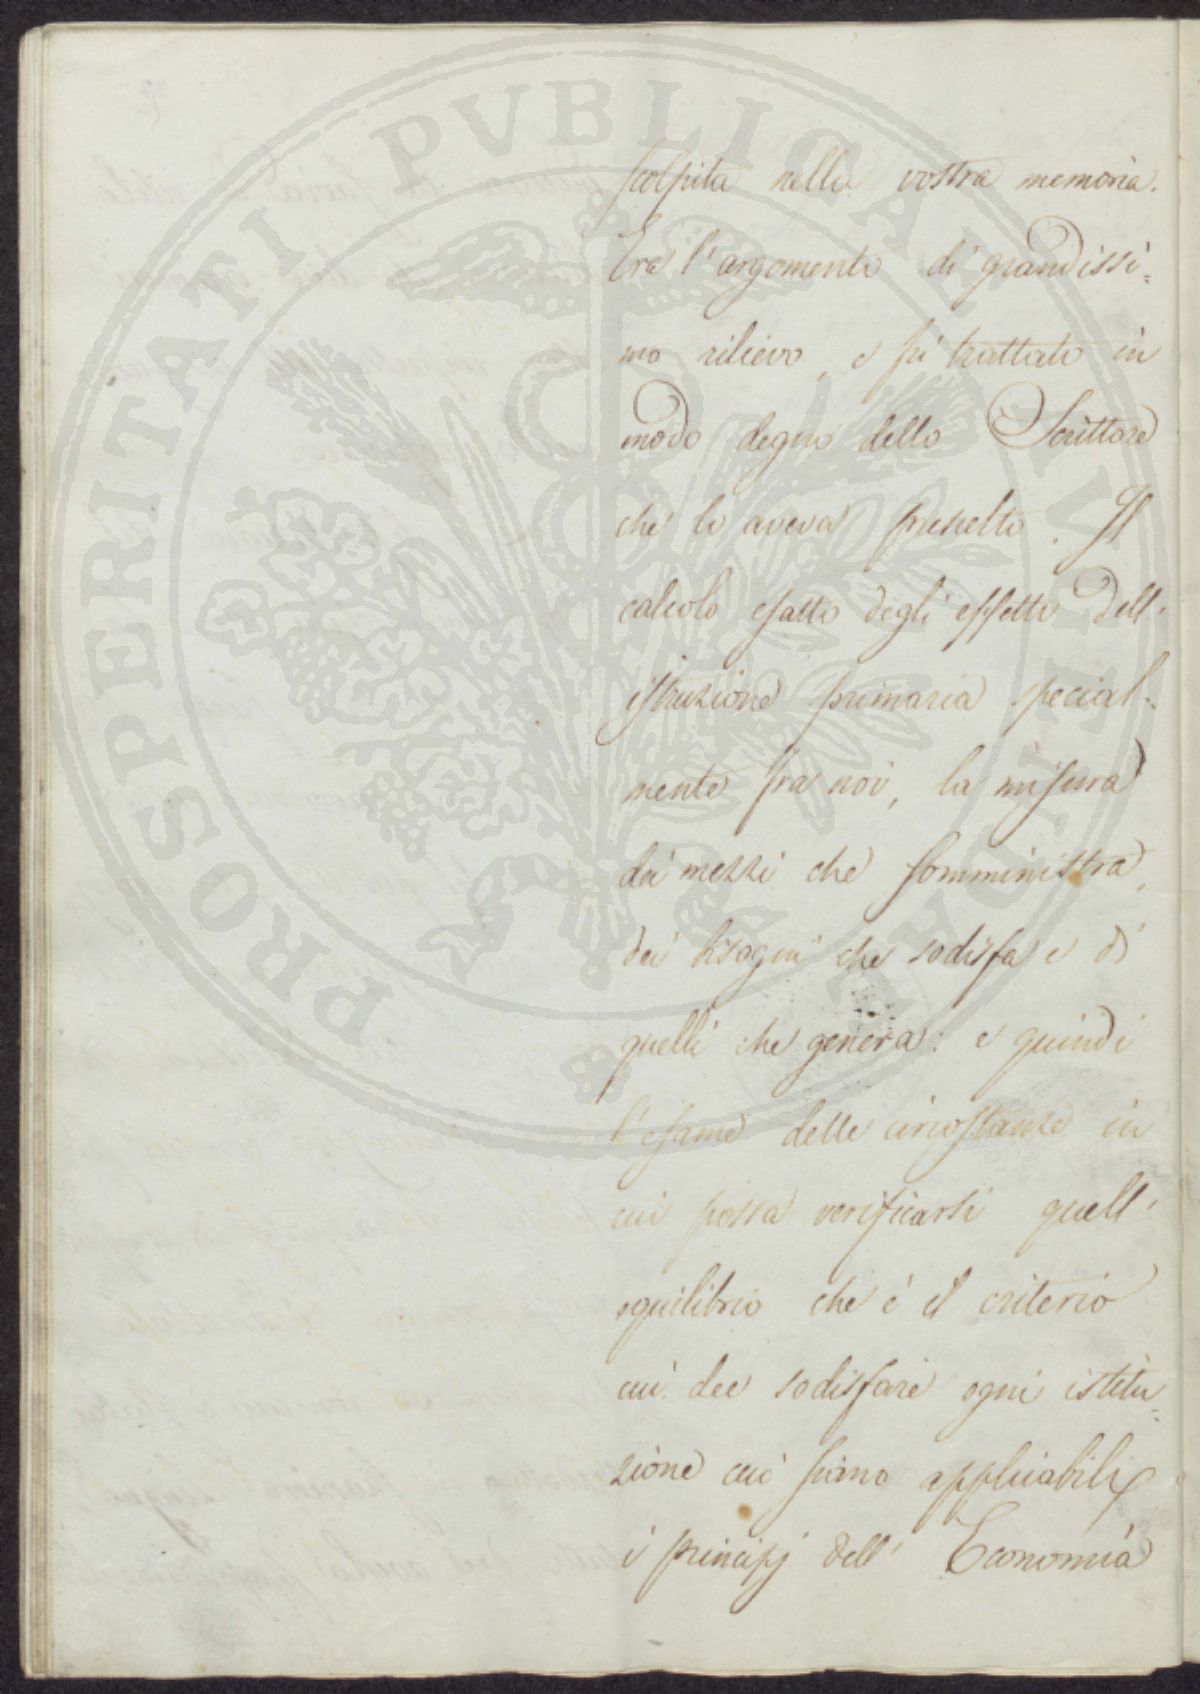 PROSPERITATI PUBLICAE AVGENDAE
scolpita nella vostra memoria.
Era l'argomento di grandissi=
mo rilievo, e fù trattato in
modo degno dello Scrittore
che lo aveva prescelto. Il
calcolo esatto degli effetti dell'
istruzione primaria special=
mente fra noi, la misura
dei mezzi che somministra,
dei bisogni che sodisfa e di
quelli che genera: e quindi
l'esame delle circostanze in
cui possa verificarsi quell'
equilibrio che è il criterio
cui dee sodisfare ogni istitu=
zione cui siano applicabili
i principj dell' Economia